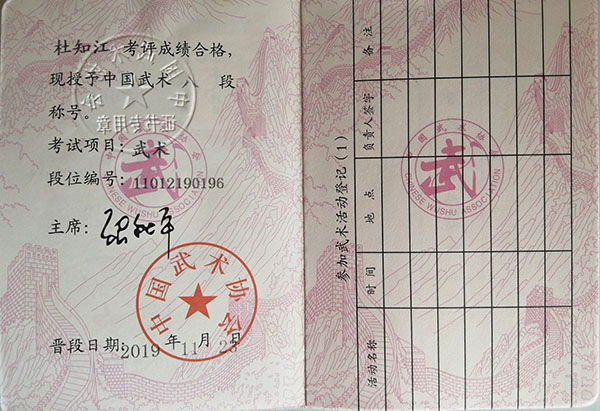 杜知江 考评成绩合格，
现授予中国武术 八 段
称号。
考试项目：武术
段位编号：11012190196
主席：
中国武术协会
晋段日期：2019 年 11 月 23 日
中国武术协会
武
CHINESE WUSHU ASSOCIATION
参加武术活动登记（1）
活动名称
时间
地点
负责人签字
备注
中国武术协会
武
CHINESE WUSHU ASSOCIATION